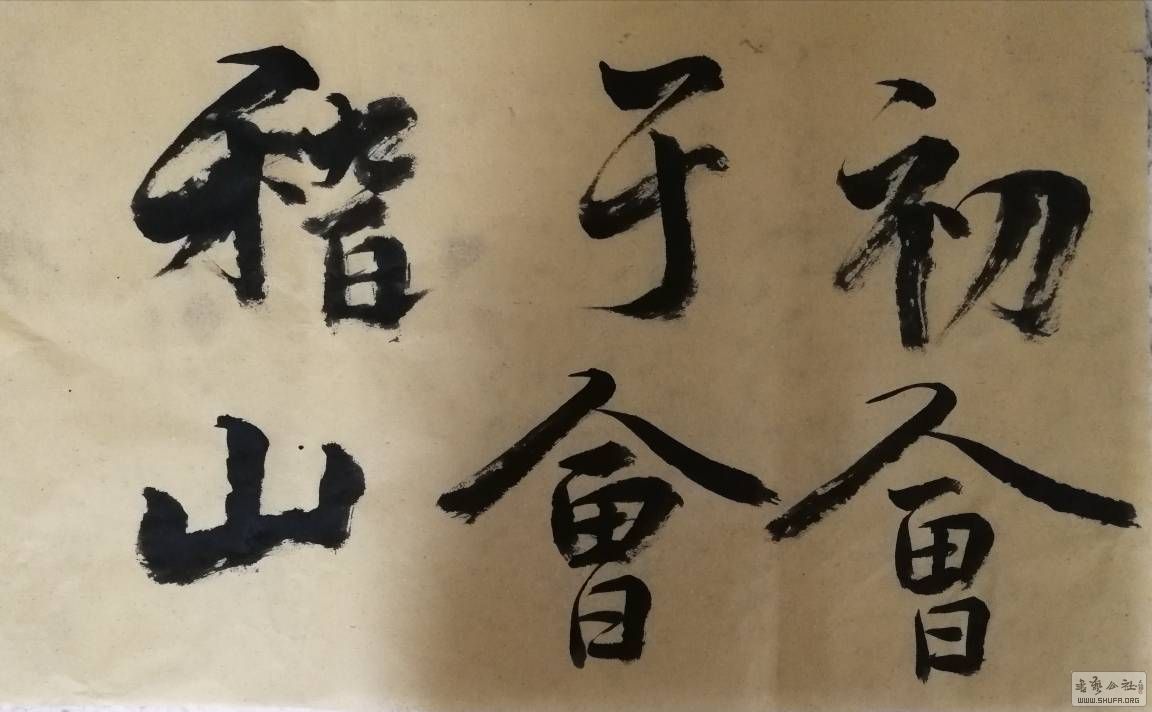 初會
于會
稽山
书艺公社
WWW.SHUFA.ORG